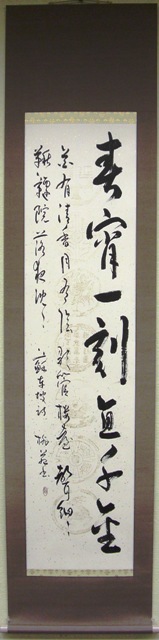 春宵一刻直千金
花有清香月有陰 歌管楼台聲細々
鞦韆院落夜沈々 蘇東坡詩